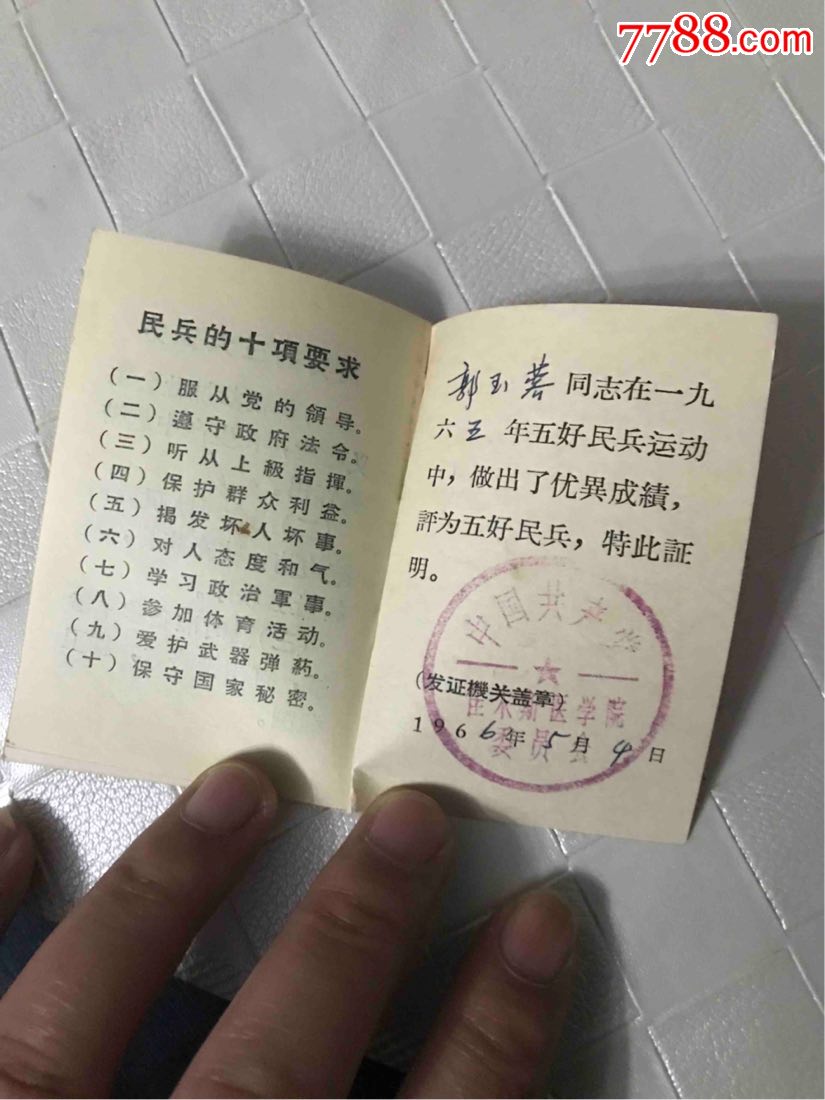 7788.com
民兵的十項要求
(一)服从党的領导。
(二)遵守政府法令。
(三)听从上級指揮。
(四)保护群众利益。
(五)揭发坏人坏事。
(六)对人态度和气。
(七)学习政治軍事。
(八)参加体育活动。
(九)爱护武器弹葯。
(十)保守国家秘密。
郭玉蓉同志在一九
六五年五好民兵运动
中，做出了优異成績，
評为五好民兵，特此証
明。
中国共产党
(发证機关盖章)
佳木斯医学院
委員会
1966年5月4日